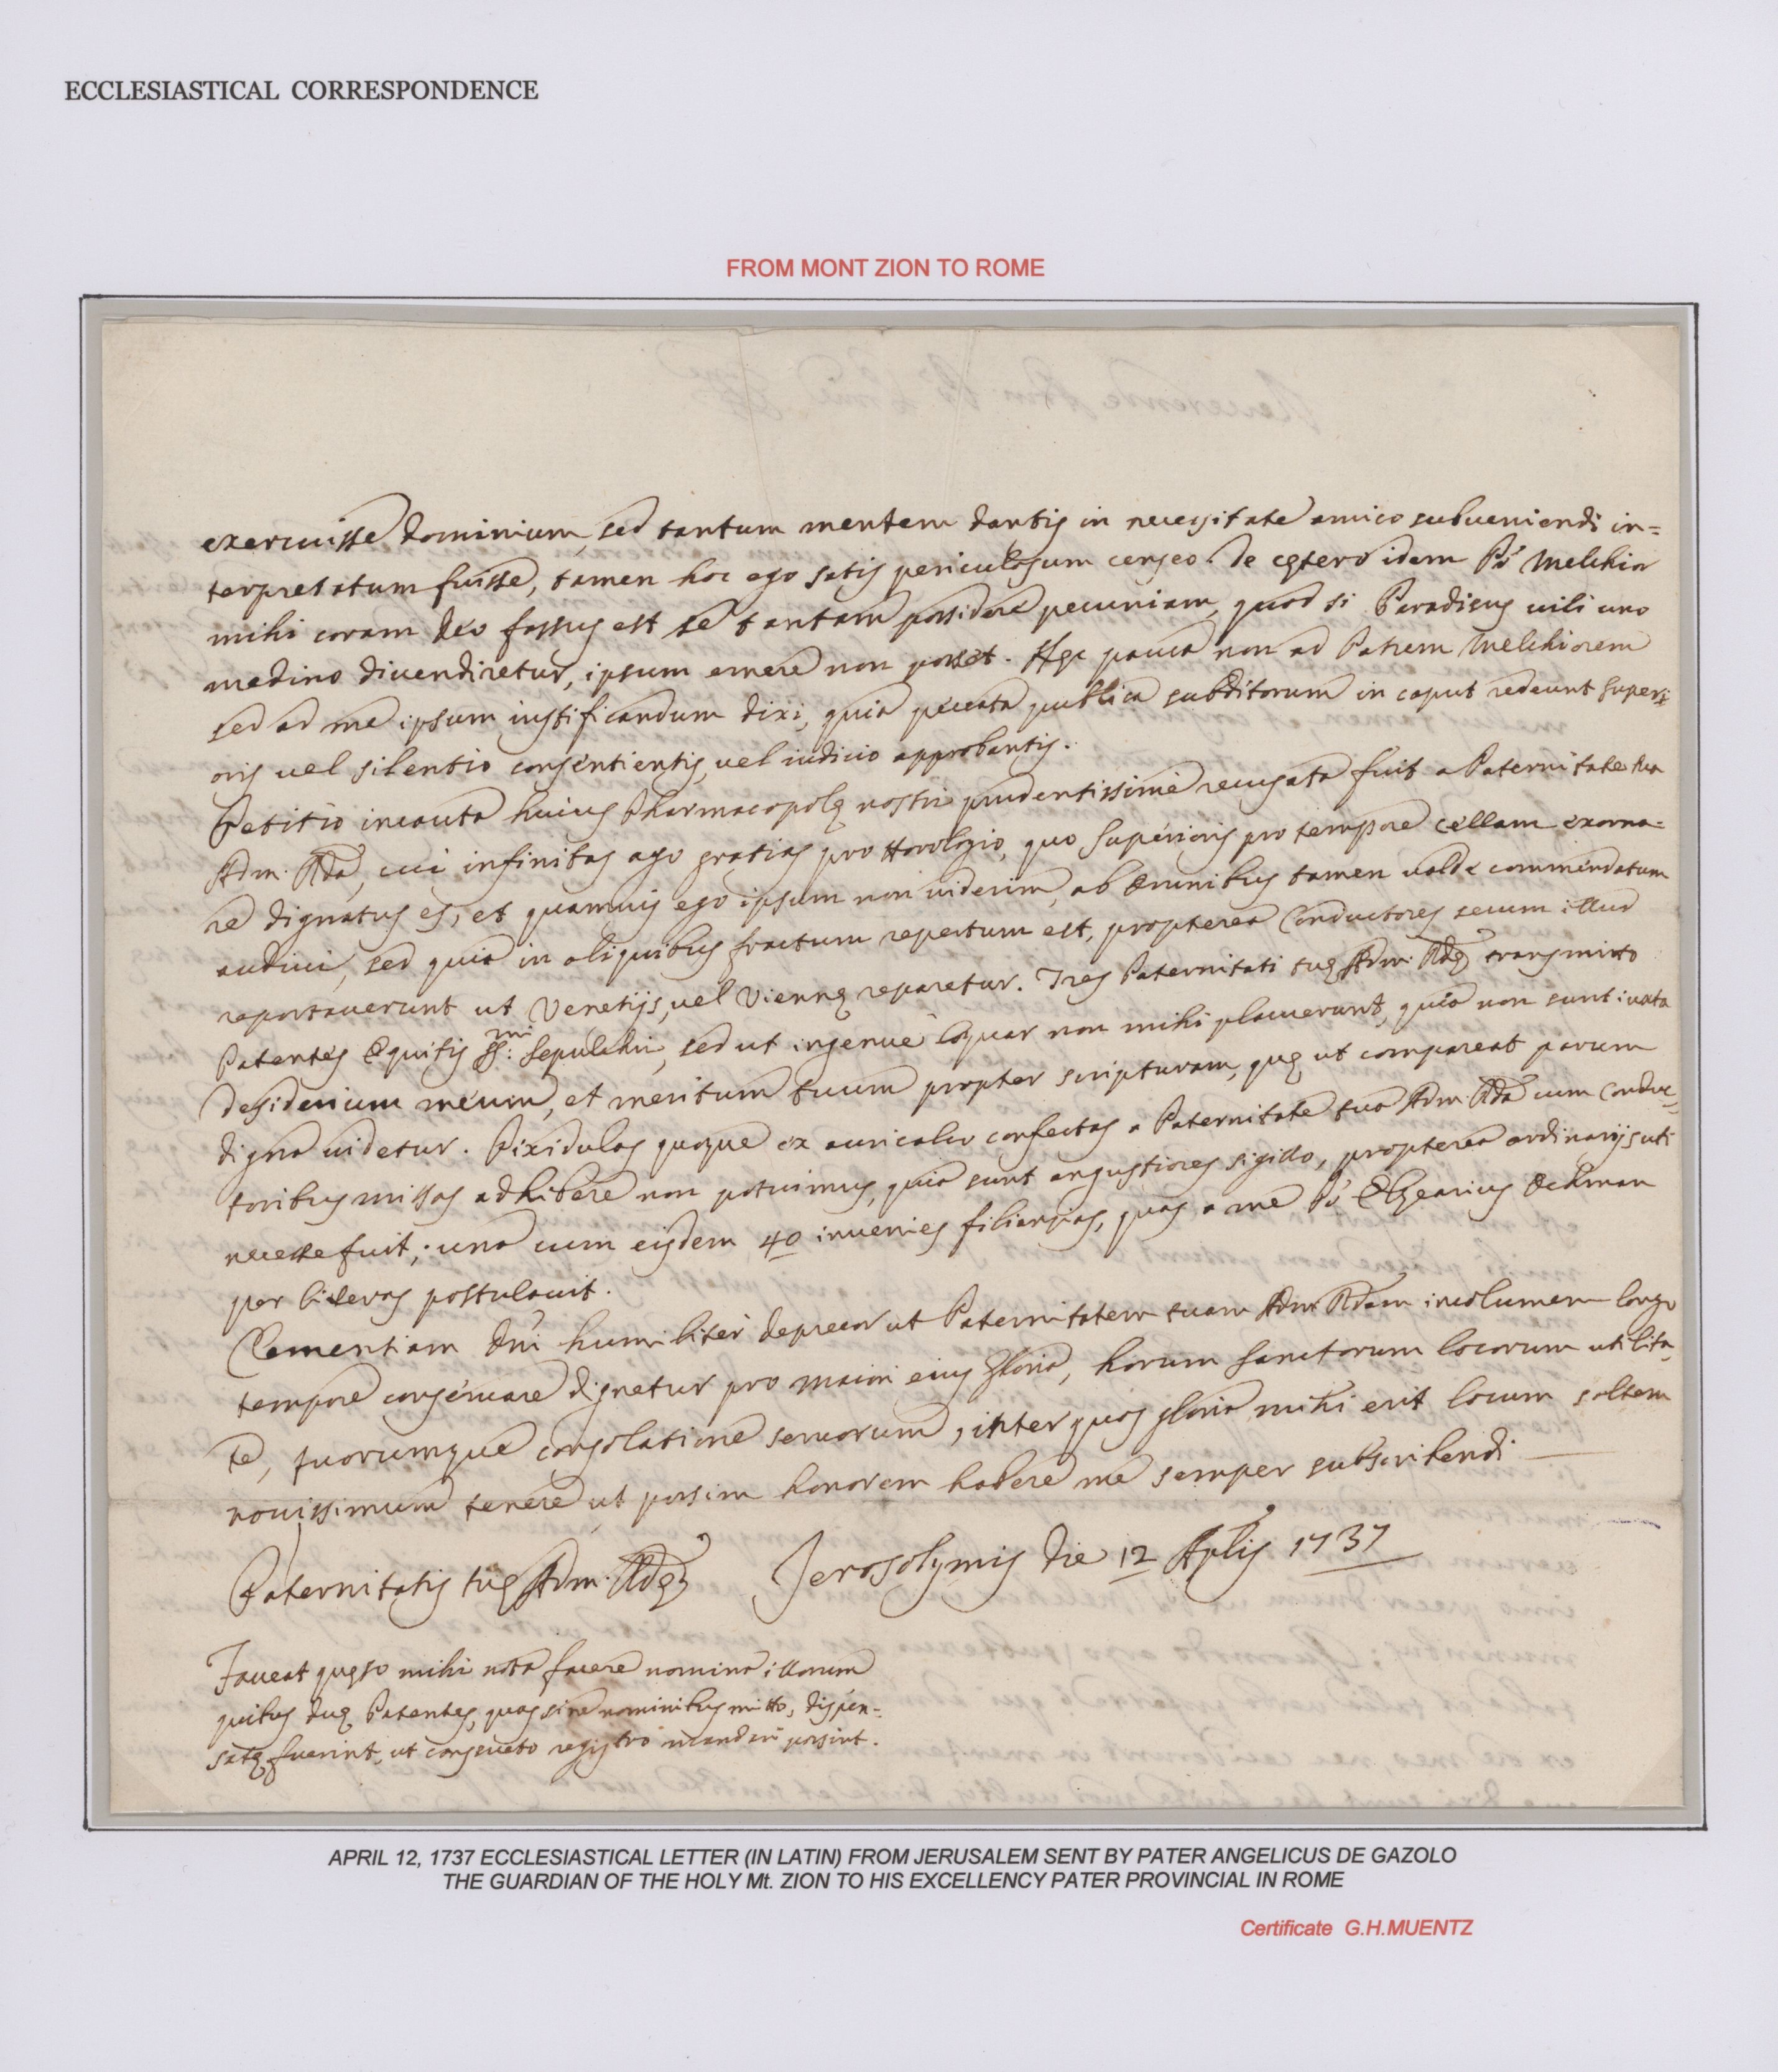 ECCLESIASTICAL CORRESPONDENCE
FROM MONT ZION TO ROME
exercuisse dominium, sed tantum mentem dantis in necessitate amico subueniendi in=
terpretatum fuisse, tamen hoc ego satis periculosum censeo. De cętero idem Pr Melchior
mihi coram Deo fassus est se tantam possidere pecuniam, quod si Paradisus uili uno
medino diuendiretur, ipsum emere non posset. Hęc pauca non ad Patrem Melchiorem
sed ad me ipsum iustificandum dixi, quia peccata publica subditorum in caput redeunt superi
oris uel silentio consentientis, uel iudicio approbantis.
Petitio incauta huius Pharmacopolę nostri prudentissime recusata fuit a Paternitate tua
Adm. Rda, cui infinitas ago gratias pro Horologio, quo Superioris pro tempore cellam exorna=
re dignatus es; et quamuis ego ipsum non uiderim, ab omnibus tamen ualde commendatum
audiui, sed quia in aliquibus fractum repertum est, propterea Conductores secum illud
reportauerunt ut Venetijs, uel Viennę reparetur. Tres Paternitati tuę Adm. Rdę transmitto
Patentes Equitis SSmi: Sepulchri, sed ut ingenue loquar non mihi placuerunt, quia non sunt iuxta
desiderium meum, et meritum tuum propter scripturam, quę ut compareat parum
digna uidetur. Pixidulas quoque ex auricalco confectas a Paternitate tua Adm. Rda cum Conduc=
toribus missas adhibere non potuimus, quia sunt angustiores sigillo, propterea ordinarijs uti
necesse fuit; una cum eisdem 40 inuenies filiarias, quas a me Pr Elzearius Ockman
per literas postulauit.
Clementiam Dni humiliter deprecor ut Paternitatem tuam Adm. Rdam incolumem longo
tempore conseruare dignetur pro maiori eius gloria, horum Sanctorum locorum utilita=
te, tuorumque consolatione seruorum, inter quos gloria mihi erit locum saltem
nouissimum tenere ut possim honorem habere me semper subscribendi
Paternitatis tuę Adm. Rdę Jerosolymis die 12 Aplis 1737
Faueat quęso mihi nota facere nomina illorum
quibus duę Patentes, quas sine nominibus mitto, dispen=
satę fuerint, ut consueto registro mandari possint.
APRIL 12, 1737 ECCLESIASTICAL LETTER (IN LATIN) FROM JERUSALEM SENT BY PATER ANGELICUS DE GAZOLO
THE GUARDIAN OF THE HOLY Mt. ZION TO HIS EXCELLENCY PATER PROVINCIAL IN ROME
Certificate G.H.MUENTZ